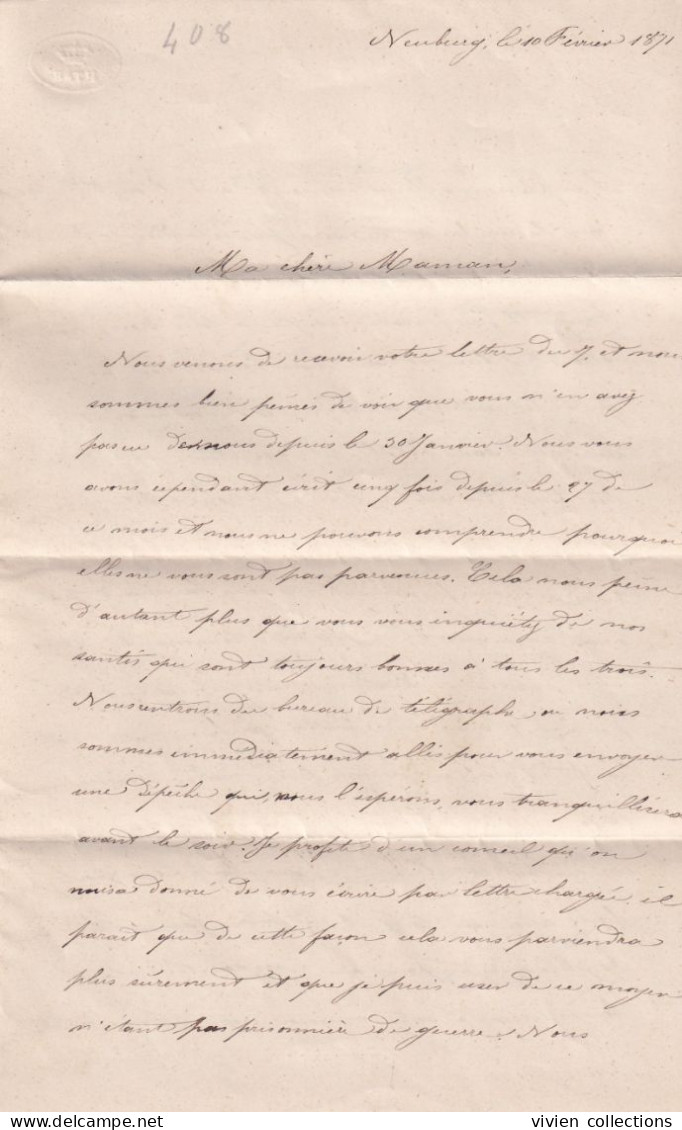 408
Neuburg, le 10 Février 1871
Ma chère Maman,
Nous venons de recevoir votre lettre du 7, et nous
sommes bien peinés de voir que vous n'en avez
pas eu de nous depuis le 30 Janvier. Nous vous
avons cependant écrit cinq fois depuis le 27 de
ce mois et nous ne pouvons comprendre pourquoi
elles ne vous sont pas parvenues. Cela nous peine
d'autant plus que vous vous inquiétez de nos
santés qui sont toujours bonnes à tous les trois.
Nous rentrons du bureau de télégraphe, où nous
sommes immédiatement allés pour vous envoyer
une dépêche qui, nous l'espérons, vous tranquillisera
avant le soir. Je profite d'un conseil qu'on
nous a donné de vous écrire par lettre chargée, il
parait que de cette façon cela vous parviendra
plus sûrement et que je puis user de ce moyen
n'étant pas prisonnière de guerre. Nous
delcampe.net
vivien collections